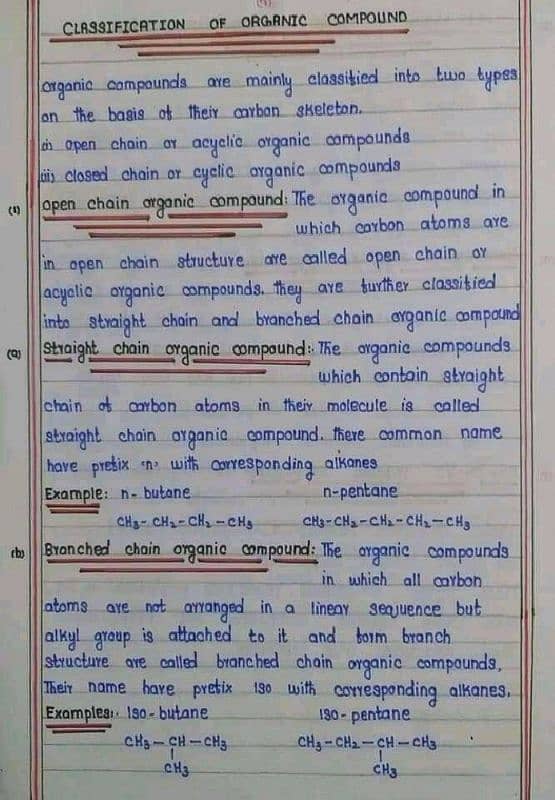 CLASSIFICATION OF ORGANIC COMPOUND
organic compounds are mainly classified into two types
on the basis of their carbon skeleton.
(i) open chain or acyclic organic compounds
(ii) closed chain or cyclic organic compounds
(1) open chain organic compound: The organic compound in
which carbon atoms are
in open chain structure are called open chain or
acyclic organic compounds. They are further classified
into straight chain and branched chain organic compound
(a) Straight chain organic compound:: The organic compounds
which contain straight
chain of carbon atoms in their molecule is called
straight chain organic compound. there common name
have prefix 'n' with corresponding alkanes
Example: n- butane n-pentane
CH₃- CH₂-CH₂ -CH₃ CH₃-CH₂-CH₂-CH₂-CH₃
(b) Branched chain organic compound: The organic compounds
in which all carbon
atoms are not arranged in a linear seqjuence but
alkyl group is attached to it and form branch
structure are called branched chain organic compounds,
Their name have prefix iso with corresponding alkanes.
Examples:. Iso-butane iso-pentane
CH₃-CH-CH₃ CH₃-CH₂-CH-CH₃
CH₃ CH₃